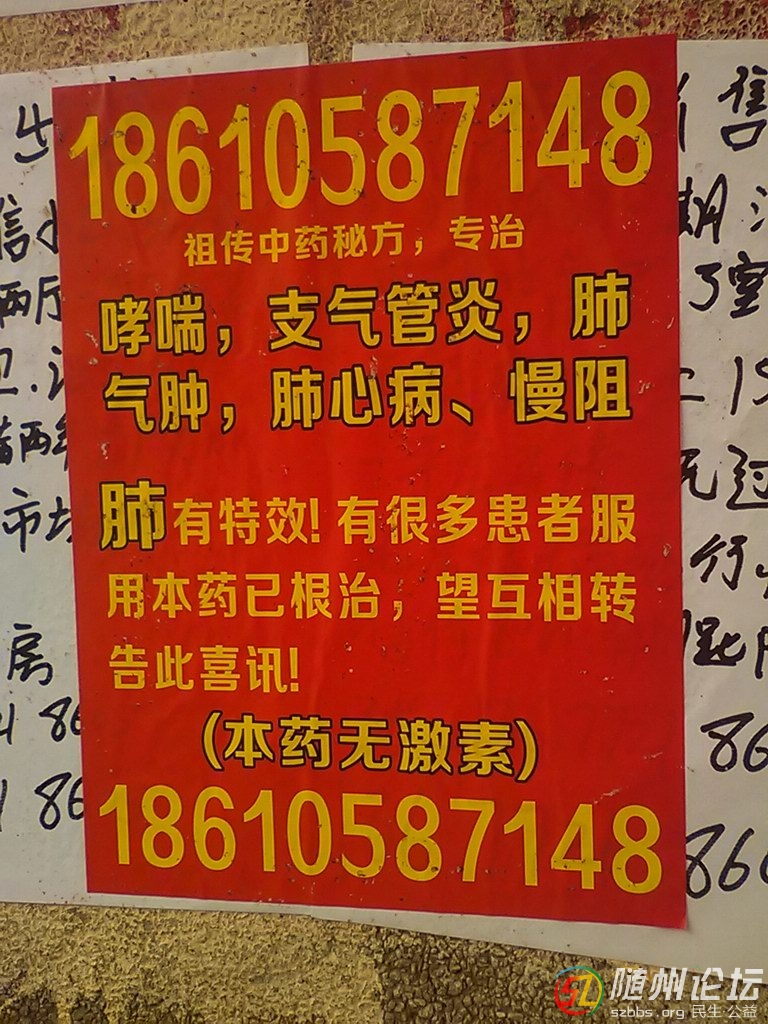 18610587148
祖传中药秘方，专治
哮喘，支气管炎，肺
气肿，肺心病、慢阻
肺有特效！有很多患者服
用本药已根治，望互相转
告此喜讯！
(本药无激素)
18610587148
售
期
了空
过
行
86
866
两厅
两年
市场
房
86
86
随州论坛
szbbs.org 民生·公益